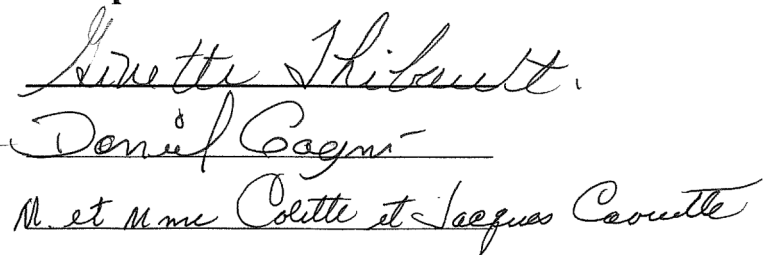 Ginette Thibault.
Daniel Gagné
M. et Mme Colette et Jacques Caouette